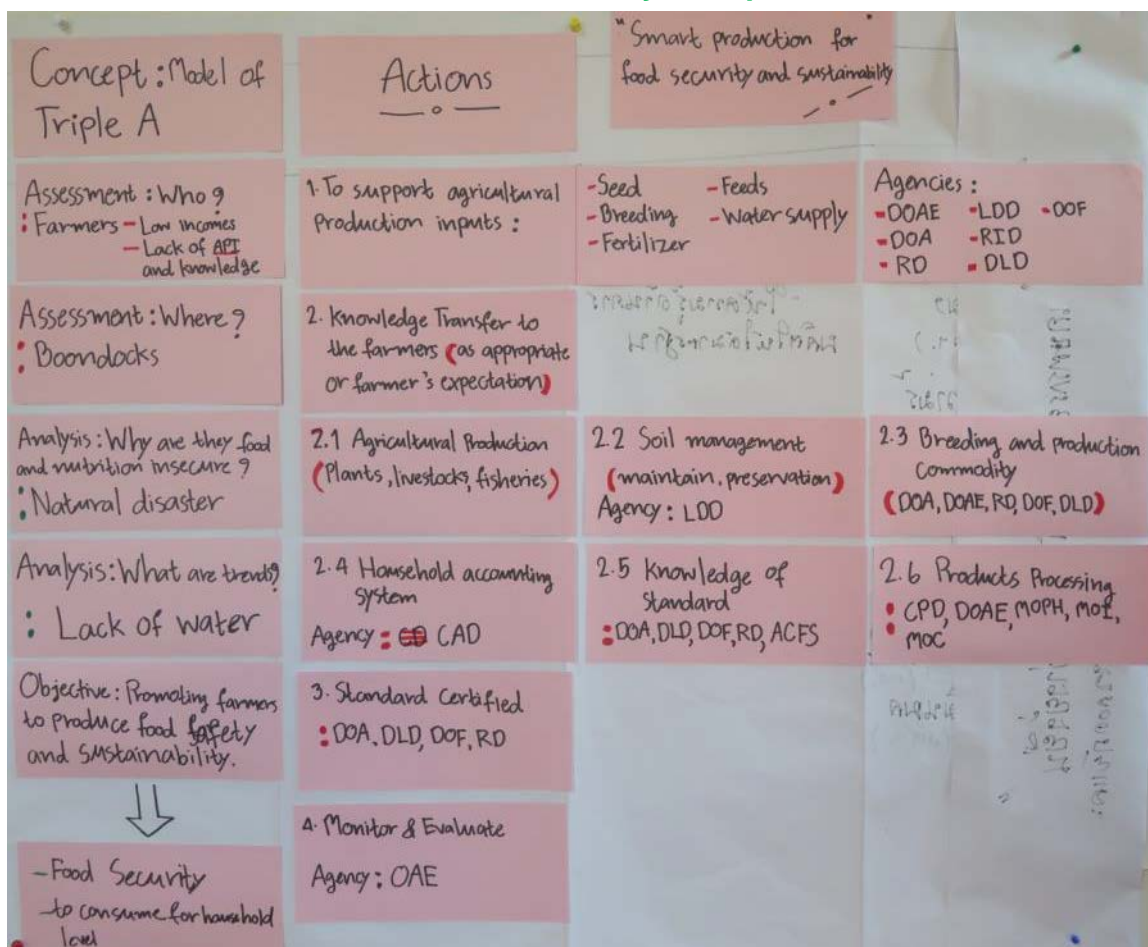 Concept: Model of
Triple A
Actions
"Smart production for
food security and sustainability"
Assessment: Who?
: Farmers - Low incomes
- Lack of API
and knowledge
1. To support agricultural
Production inputs:
-Seed -Feeds
-Breeding -Water supply
-Fertilizer
Agencies:
-DOAE -LDD -DOF
-DOA -RID
-RD -DLD
Assessment: Where?
: Boondocks
2. Knowledge Transfer to
the farmers (as appropriate
or farmer's expectation)
Analysis: Why are they food
and nutrition insecure?
: Natural disaster
2.1 Agricultural Production
(Plants, livestocks, fisheries)
2.2 Soil management
(maintain, preservation)
Agency: LDD
2.3 Breeding and production
Commodity
(DOA, DOAE, RD, DOF, DLD)
Analysis: What are trends?
: Lack of water
2.4 Household accounting
system
Agency: CAD
2.5 Knowledge of
Standard
: DOA, DLD, DOF, RD, ACFS
2.6 Products Processing
: CPD, DOAE, MOPH, MOI,
MOC
Objective: Promoting farmers
to produce food safety
and sustainability.
3. Standard Certified
: DOA, DLD, DOF, RD
4. Monitor & Evaluate
Agency: OAE
-Food Security
-to consume for household
level